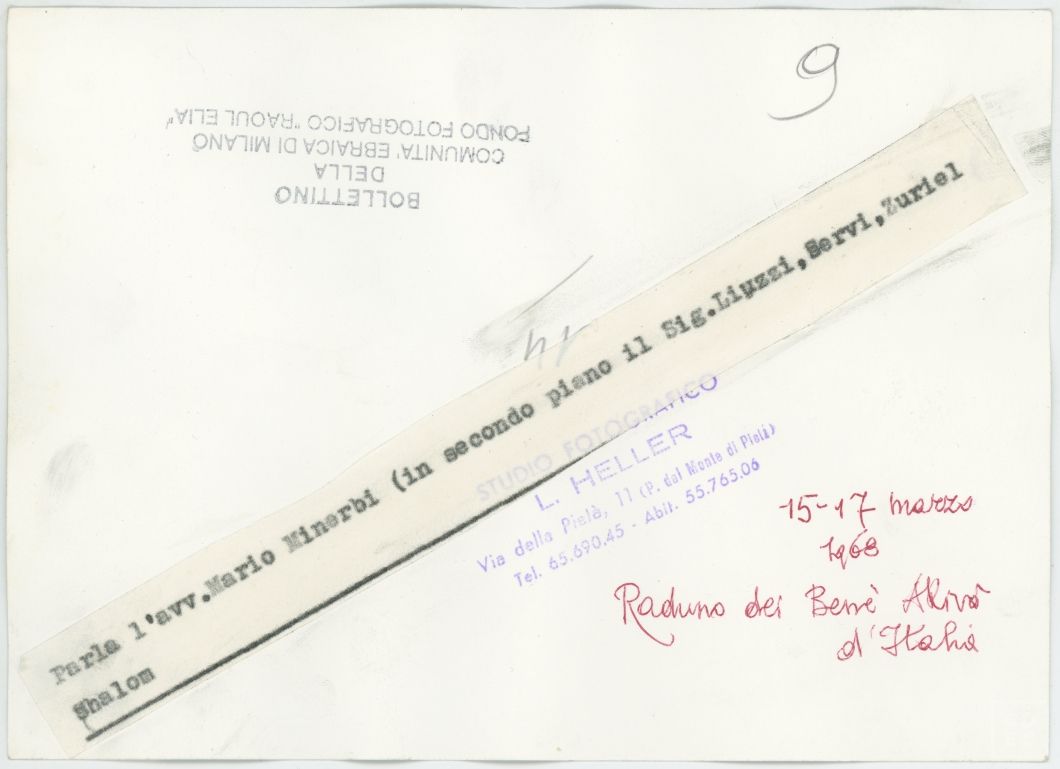 9
BOLLETTINO
DELLA
COMUNITA' EBRAICA DI MILANO
FONDO FOTOGRAFICO "RAOUL ELIA"
Parla l'avv.Mario Minerbi (in secondo piano il Sig.Liuzzi,Servi,Zuriel
Shalom
STUDIO FOTOGRAFICO
L. HELLER
Via della Pietà, 11 (P. dal Monte di Pietà)
Tel. 65.690.45 - Abit. 55.765.06
15-17 marzo
1968
Raduno dei Bennè Akivà
d'Italia